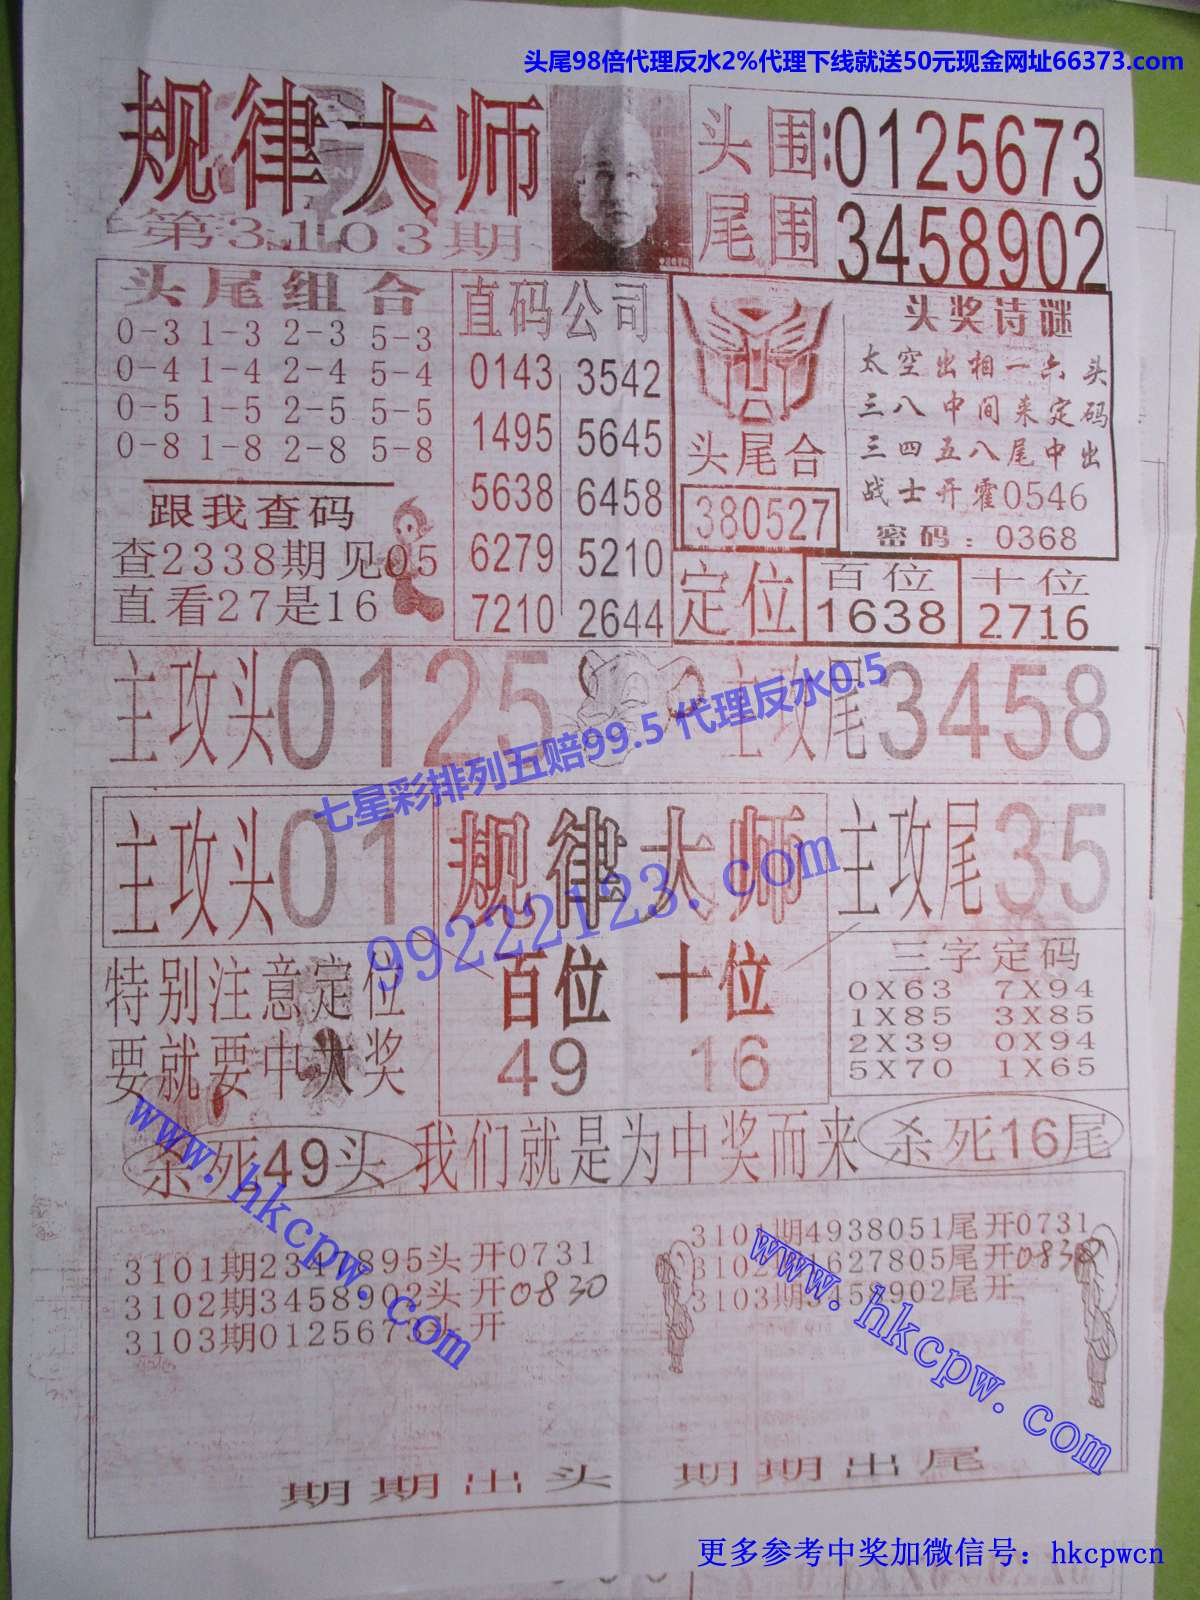 头尾98倍代理反水2%代理下线就送50元现金网址66373.com
规律大师
第3103期
头围:0125673
尾围 3458902
头尾组合
0-3 1-3 2-3 5-3
0-4 1-4 2-4 5-4
0-5 1-5 2-5 5-5
0-8 1-8 2-8 5-8
跟我查码
查2338期见05
直看27是16
直码公司
0143 3542
1495 5645
5638 6458
6279 5210
7210 2644
头尾合
380527
头奖诗谜
太空出相一六头
三八中间来定码
三四五八尾中出
战士开霍0546
密码:0368
定位
百位
1638
十位
2716
主攻头0125 主攻尾3458
七星彩排列五赔99.5 代理反水0.5
99222123.com
主攻头01
规律大师
主攻尾35
特别注意定位
要就要中大奖
百位 十位
49 16
三字定码
0X63 7X94
1X85 3X85
2X39 0X94
5X70 1X65
杀死49头 我们就是为中奖而来 杀死16尾
www.hkcpw.com
3101期234 895头开0731
3102期3458902头开0830
3103期0125673头开
3101期4938051尾开0731
3102 627805尾开083
3103期3458902尾开
www.hkcpw.com
期期出头 期期出尾
更多参考中奖加微信号：hkcpwcn